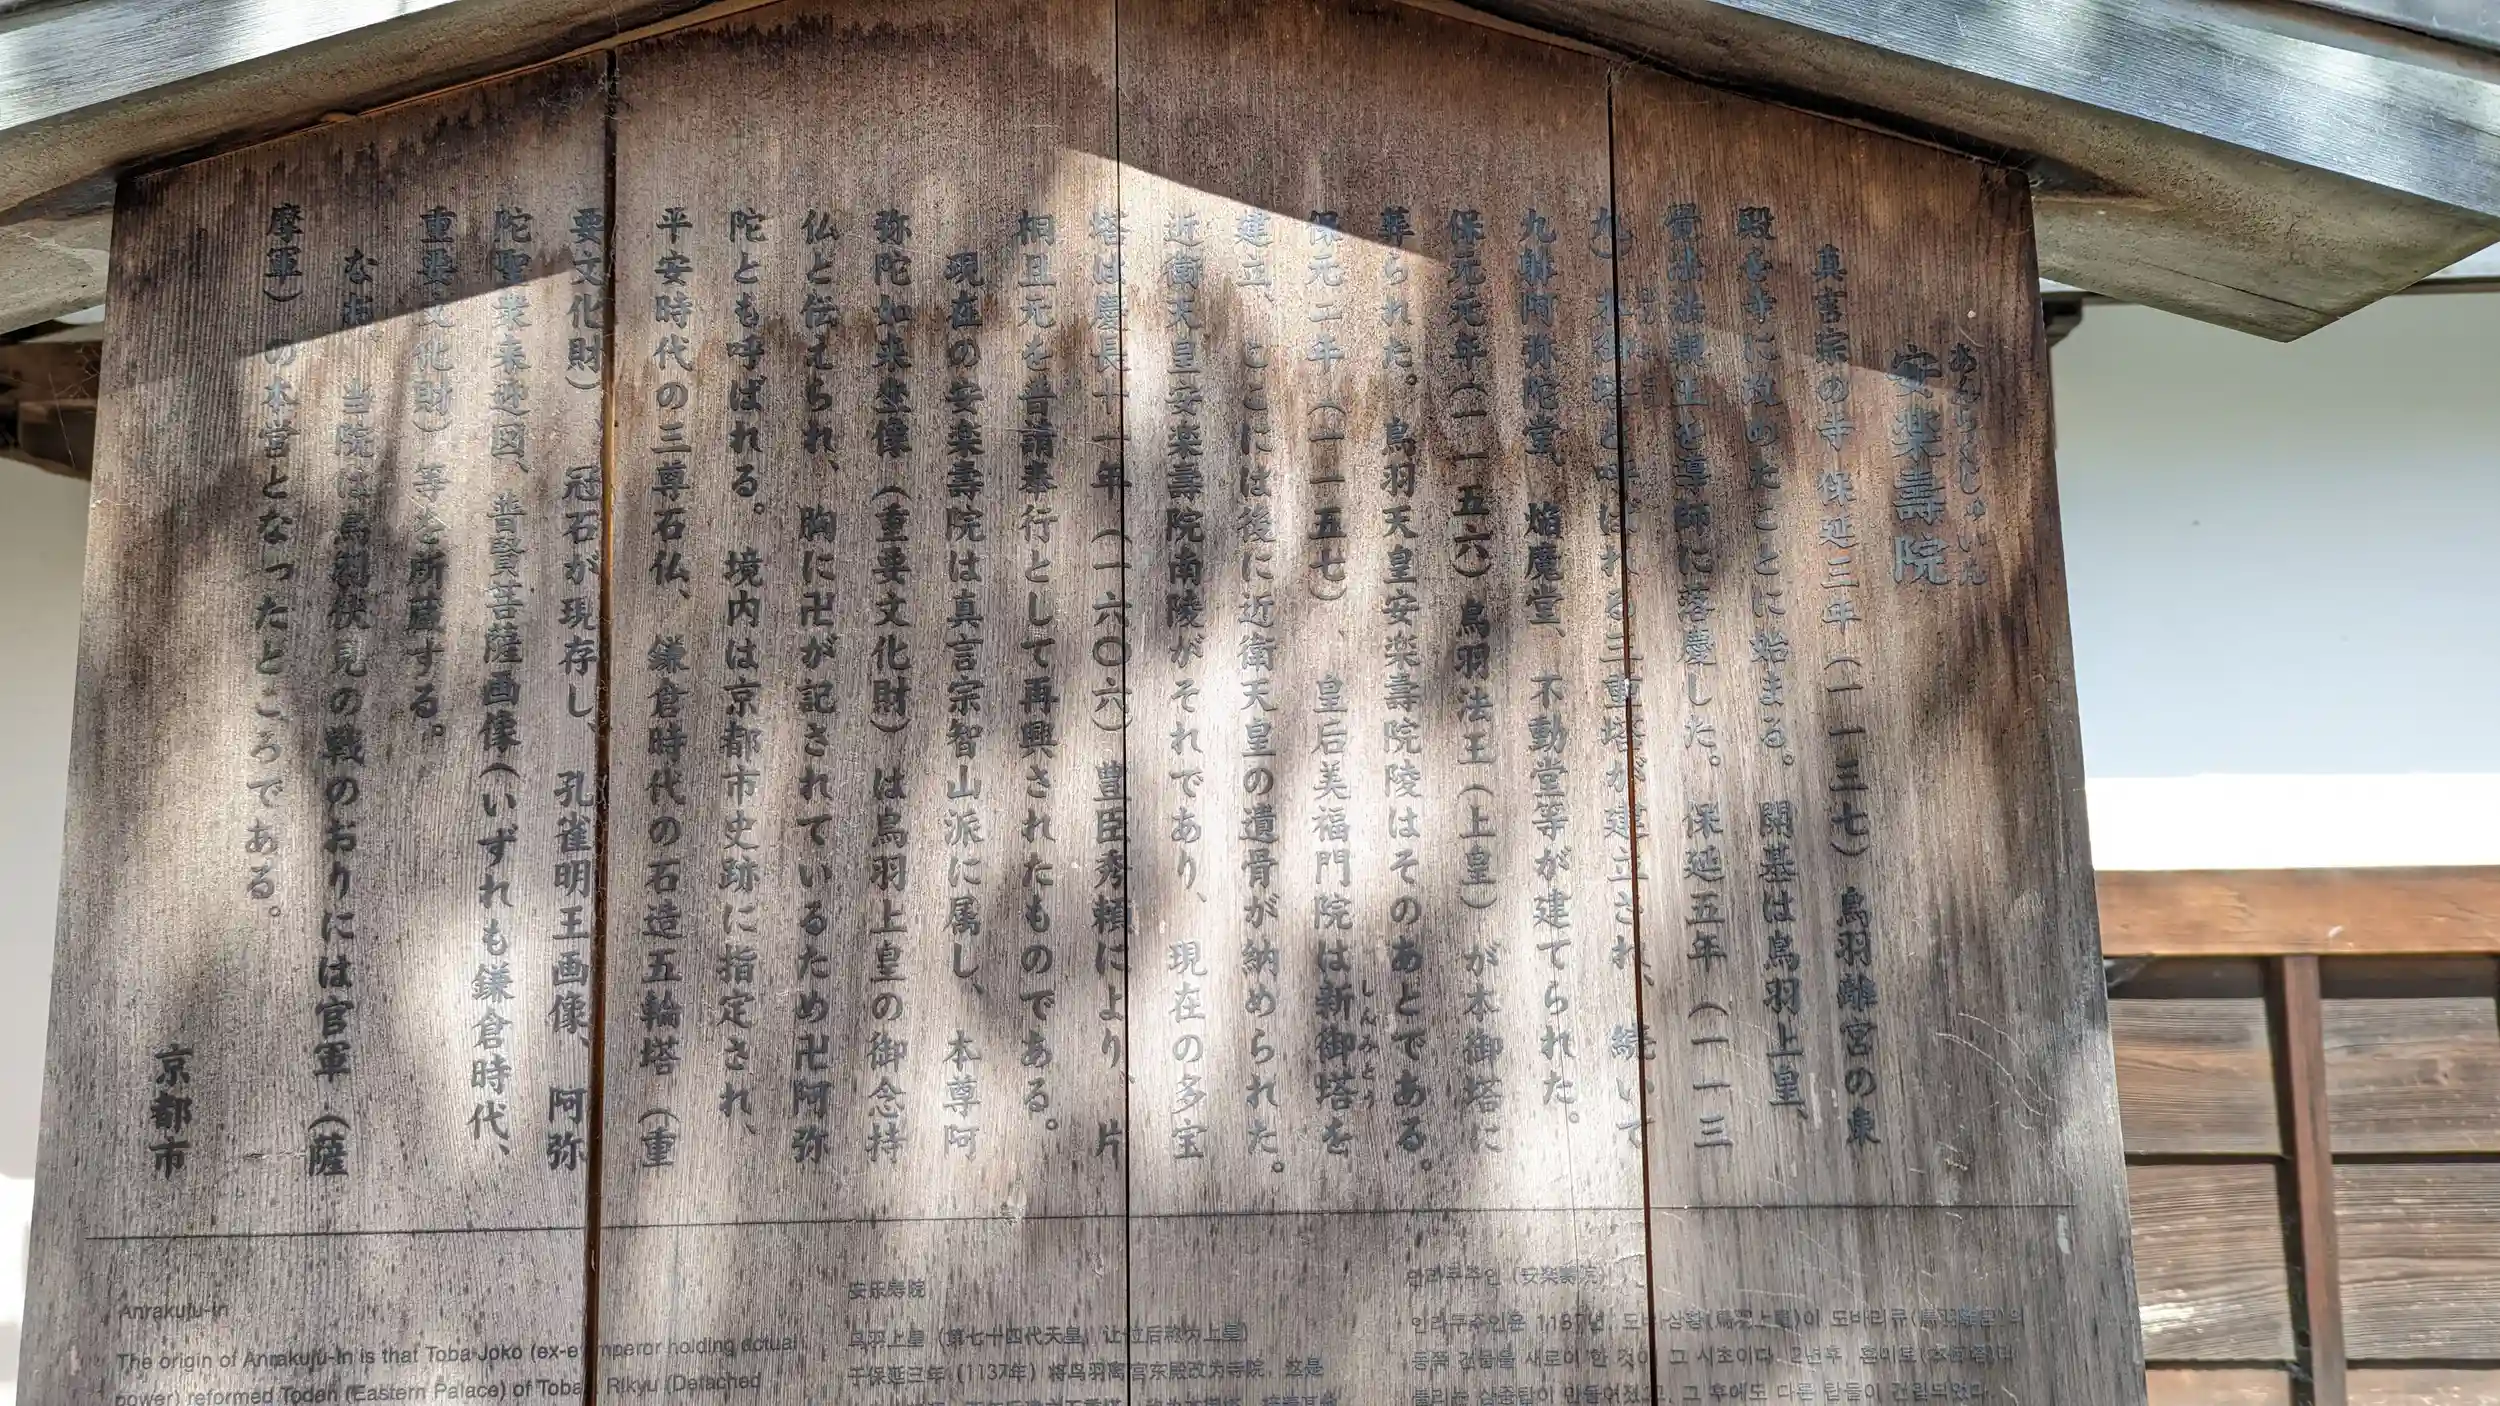 あんらくじゅいん
安楽壽院
真言宗の寺 保延三年（一一三七）鳥羽離宮の東
殿を寺に改めたことに始まる。開基は鳥羽上皇、
覺法法親王を導師に落慶した。保延五年（一一三
九）本御塔と呼ばれる三重塔が建立され、続いて
九躰阿弥陀堂、焔魔堂、不動堂等が建てられた。
保元元年（一一五六）鳥羽法王（上皇）が本御塔に
葬られた。鳥羽天皇安楽壽院陵はそのあとである。
保元二年（一一五七）、皇后美福門院は新御塔を
しんみとう
建立、ここには後に近衛天皇の遺骨が納められた。
近衛天皇安楽壽院南陵がそれであり、現在の多宝
塔は慶長十一年（一六〇六）豊臣秀頼により、片
桐且元を普請奉行として再興されたものである。
現在の安楽壽院は真言宗智山派に属し、本尊阿
弥陀如来坐像（重要文化財）は鳥羽上皇の御念持
仏と伝えられ、胸に卍が記されているため卍阿弥
陀とも呼ばれる。境内は京都市史跡に指定され、
平安時代の三尊石仏、鎌倉時代の石造五輪塔（重
要文化財）、冠石が現存し、孔雀明王画像、阿弥
陀聖衆来迎図、普賢菩薩画像（いずれも鎌倉時代、
重要文化財）等を所蔵する。
なお、当院は鳥羽伏見の戦のおりには官軍（薩
摩軍）の本営となったところである。
京都市
Anrakuju-in
The origin of Anrakuju-in is that Toba Joko (ex-emperor holding actual
power) reformed Toden (Eastern Palace) of Toba Rikyu (Detached
安乐寿院
鸟羽上皇（第七十四代天皇，让位后称为上皇）
于保延三年（1137年）将鸟羽离宫东殿改为寺院，这是
안라쿠주인（安楽壽院）
안라쿠주인은 1137년, 도바 상황(鳥羽上皇)이 도바리큐(鳥羽離宮)의
동쪽 건물을 새로이 한 것이 그 시초이다. 2년후, 혼미토(本御塔)라
불리는 삼중탑이 만들어졌고, 그 후에도 다른 탑들이 건립되었다.